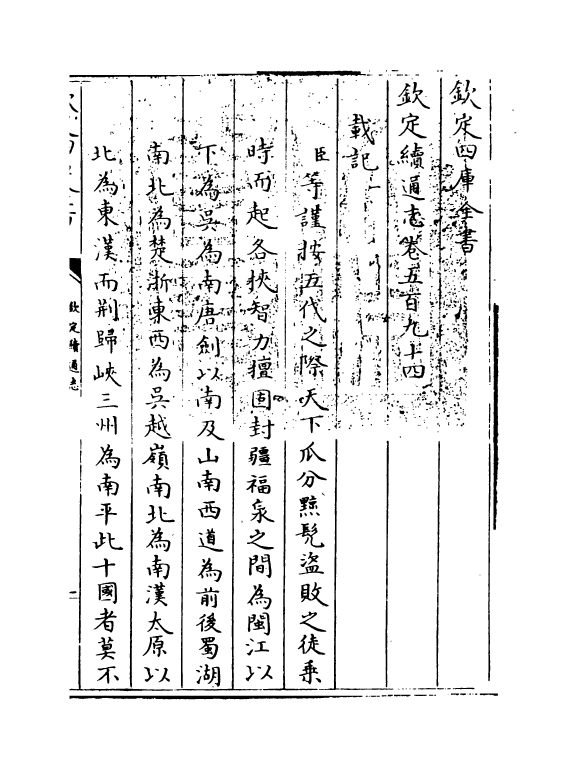 欽定四庫全書
欽定續通志卷五百九十四
載記一
臣等謹按五代之際天下瓜分黥髠盜敗之徒乗
時而起各挾智力擅固封疆福泉之間為閩江以
下為吳為南唐劍以南及山南西道為前後蜀湖
南北為楚浙東西為吳越嶺南北為南漢太原以
北為東漢而荆歸峽三州為南平此十國者莫不
欽定續通志